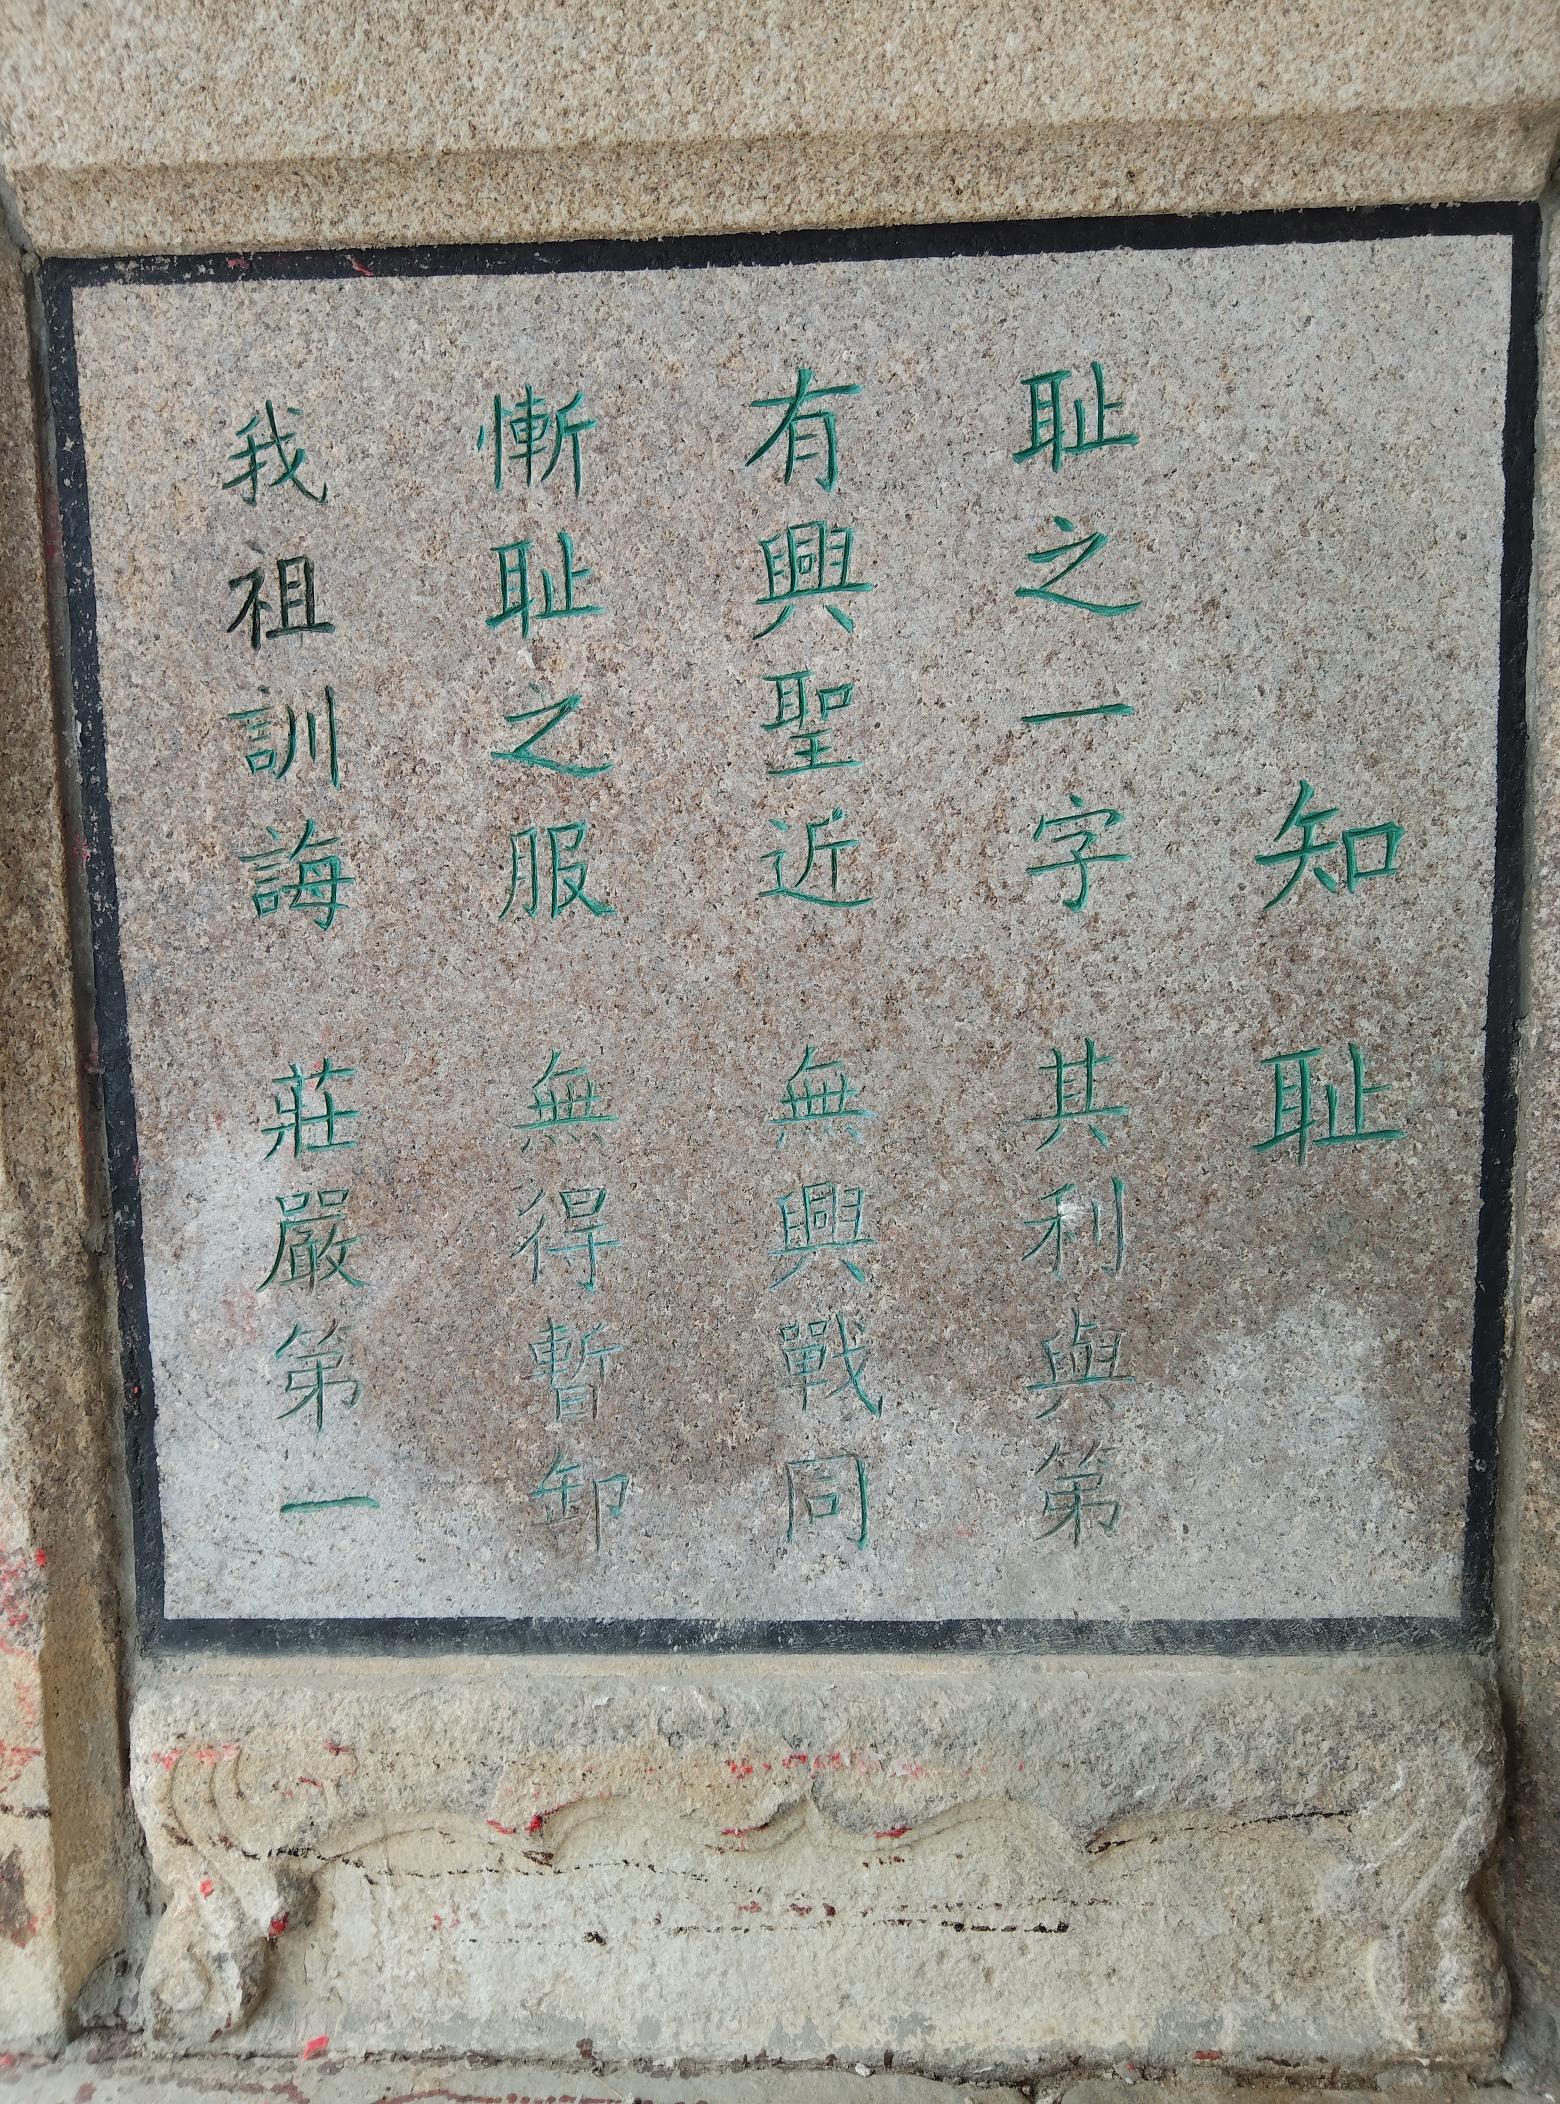 知耻
耻之一字 其利與第
有興聖近 無興戰同
慚耻之服 無得暫卸
我祖訓誨 莊嚴第一